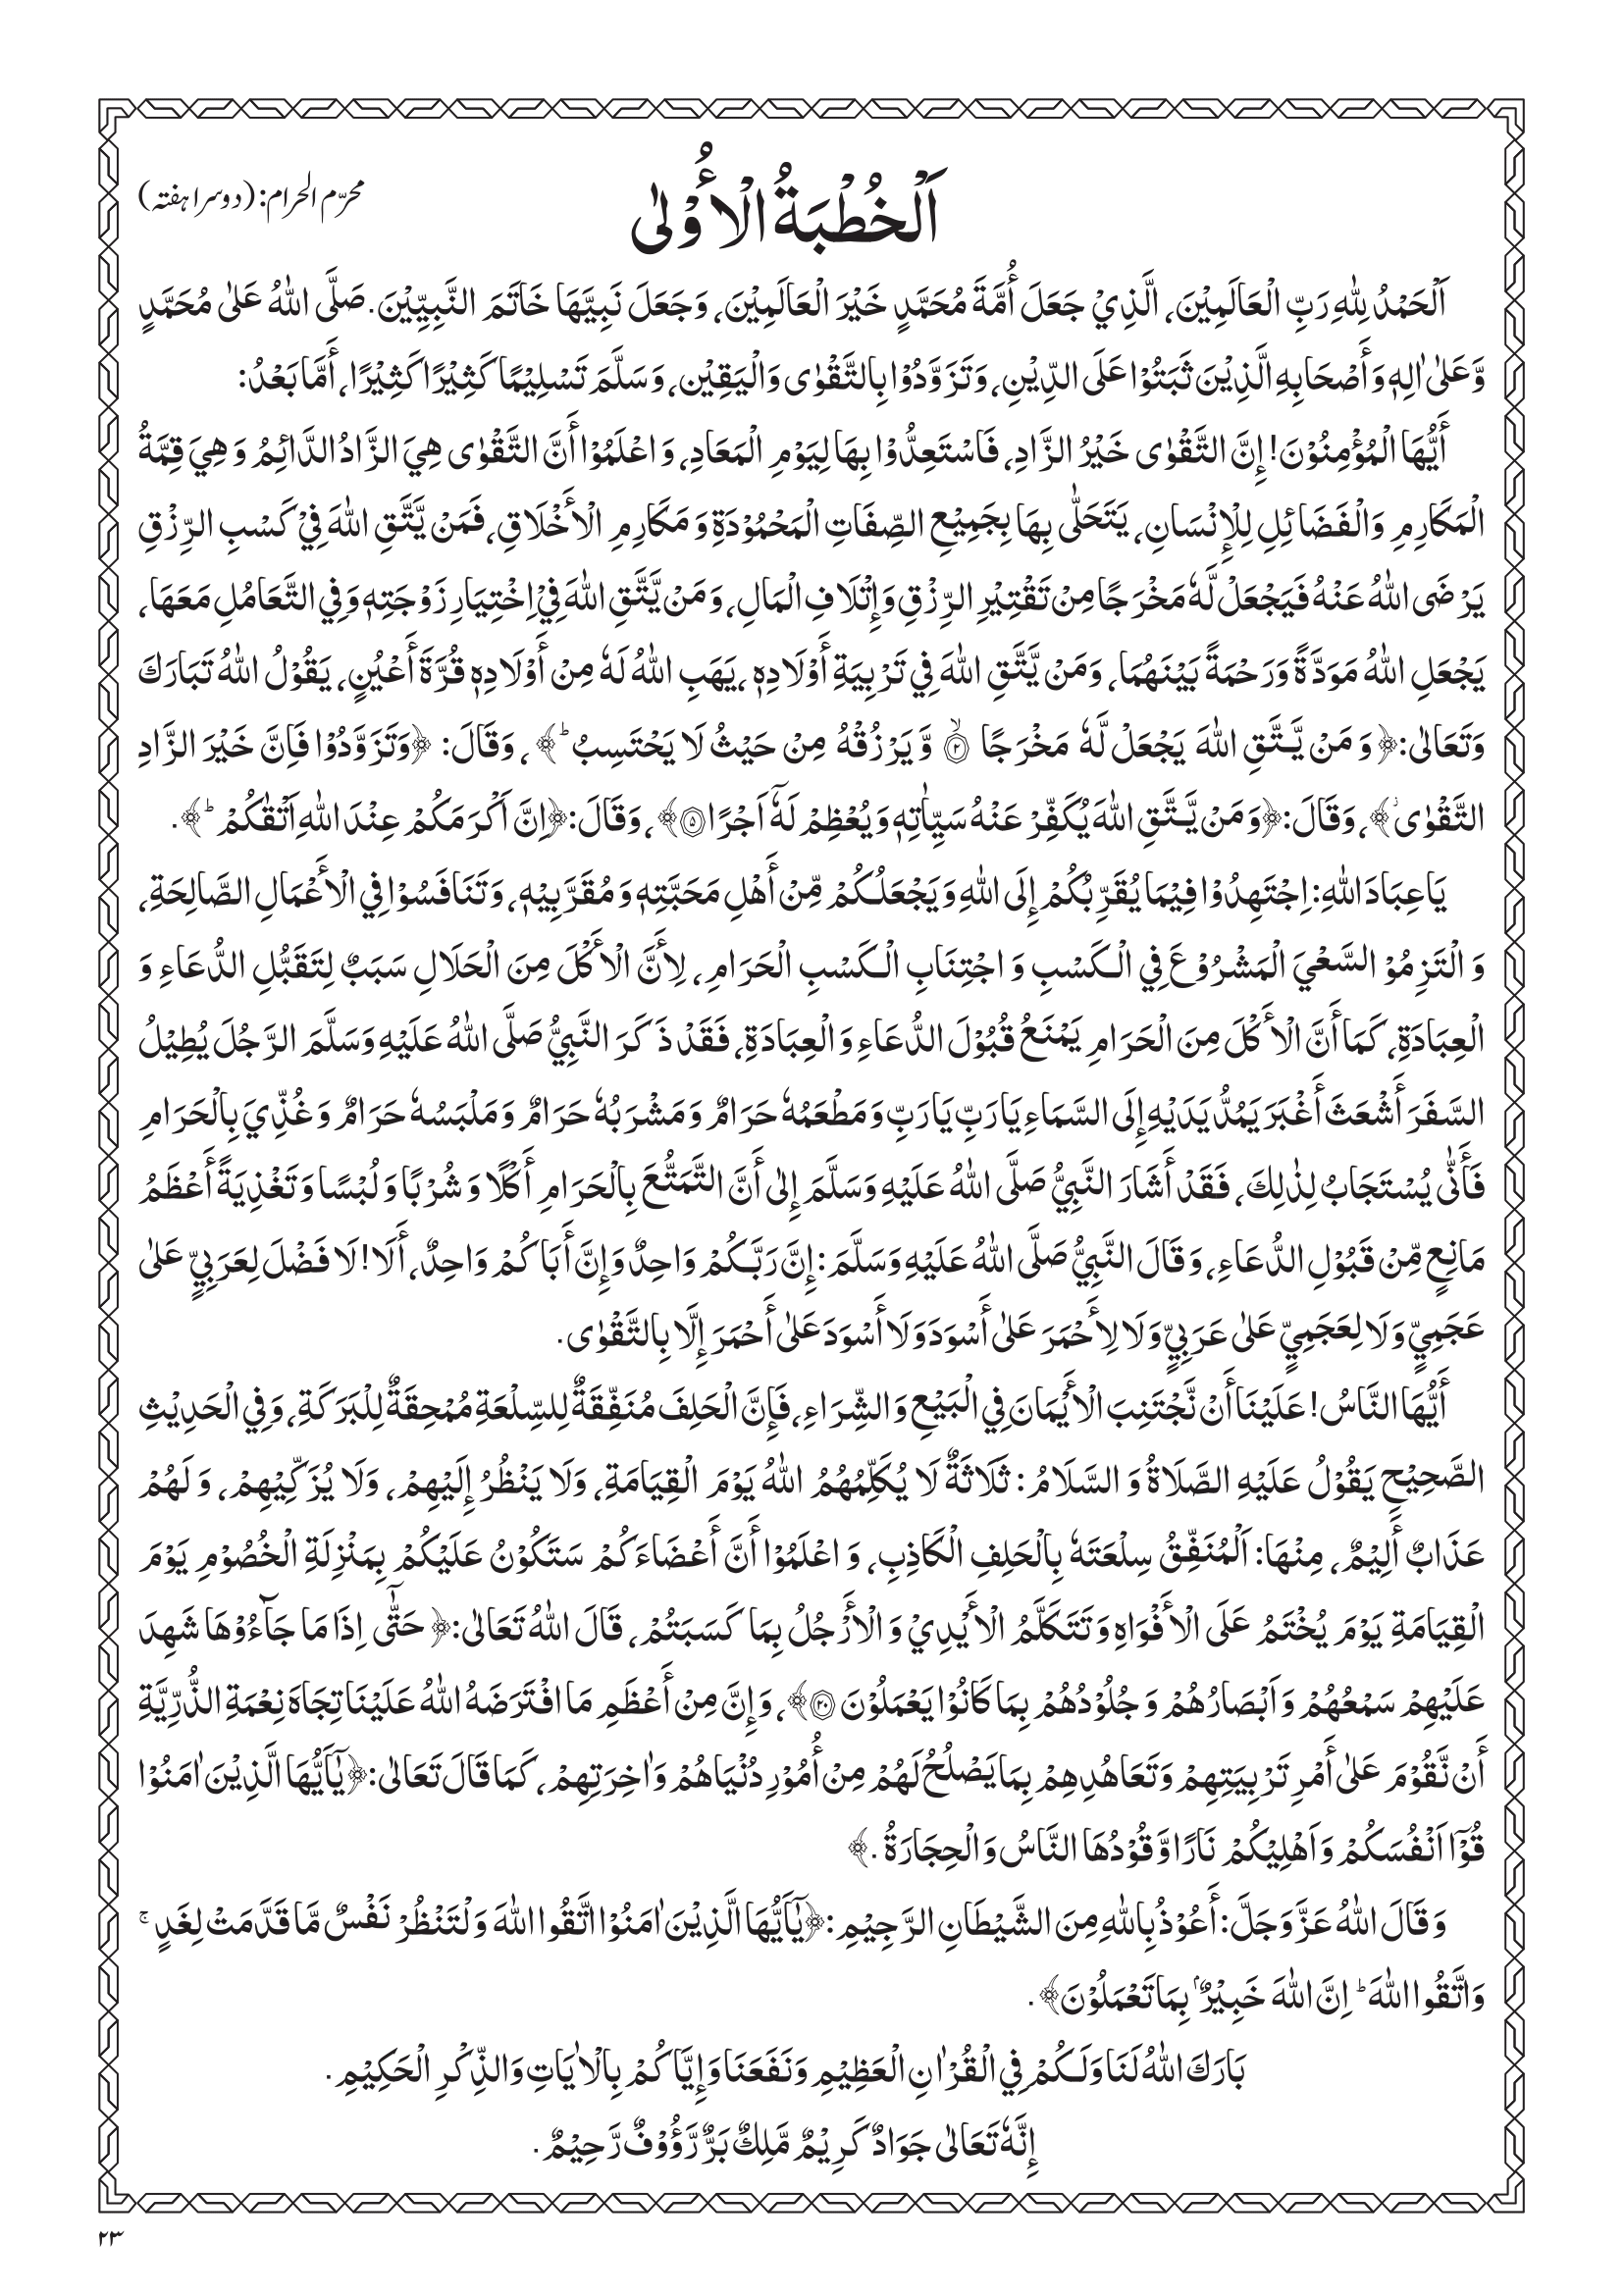 محرّم الحرام: (دوسرا ہفتہ)
اَلْخُطْبَةُ الْأُوْلٰى
اَلْحَمْدُ لِلّٰهِ رَبِّ الْعَالَمِيْنَ، الَّذِيْ جَعَلَ أُمَّةَ مُحَمَّدٍ خَيْرَ الْعَالَمِيْنَ، وَجَعَلَ نَبِيَّهَا خَاتَمَ النَّبِيِّيْنَ. صَلَّى اللّٰهُ عَلٰى مُحَمَّدٍ
وَّعَلٰى اٰلِهٖ وَأَصْحَابِهِ الَّذِيْنَ ثَبَتُوْا عَلَى الدِّيْنِ، وَتَزَوَّدُوْا بِالتَّقْوٰى وَالْيَقِيْنِ، وَسَلَّمَ تَسْلِيْمًا كَثِيْرًا كَثِيْرًا، أَمَّا بَعْدُ:
أَيُّهَا الْمُؤْمِنُوْنَ! إِنَّ التَّقْوٰى خَيْرُ الزَّادِ، فَاسْتَعِدُّوْا بِهَا لِيَوْمِ الْمَعَادِ، وَاعْلَمُوْا أَنَّ التَّقْوٰى هِيَ الزَّادُ الدَّائِمُ وَهِيَ قِمَّةُ
الْمَكَارِمِ وَالْفَضَائِلِ لِلْإِنْسَانِ، يَتَحَلّٰى بِهَا بِجَمِيْعِ الصِّفَاتِ الْمَحْمُوْدَةِ وَمَكَارِمِ الْأَخْلَاقِ، فَمَنْ يَّتَّقِ اللّٰهَ فِيْ كَسْبِ الرِّزْقِ
يَرْضَى اللّٰهُ عَنْهُ فَيَجْعَلْ لَّهٗ مَخْرَجًا مِنْ تَقْتِيْرِ الرِّزْقِ وَإِتْلَافِ الْمَالِ، وَمَنْ يَّتَّقِ اللّٰهَ فِيْ اِخْتِيَارِ زَوْجَتِهٖ وَفِي التَّعَامُلِ مَعَهَا،
يَجْعَلِ اللّٰهُ مَوَدَّةً وَرَحْمَةً بَيْنَهُمَا، وَمَنْ يَّتَّقِ اللّٰهَ فِي تَرْبِيَةِ أَوْلَادِهٖ، يَهَبِ اللّٰهُ لَهٗ مِنْ أَوْلَادِهٖ قُرَّةَ أَعْيُنٍ، يَقُوْلُ اللّٰهُ تَبَارَكَ
وَتَعَالٰى: ﴿وَمَنْ يَّتَّقِ اللّٰهَ يَجْعَلْ لَّهٗ مَخْرَجًا ۙ۝۲ وَّيَرْزُقْهُ مِنْ حَيْثُ لَا يَحْتَسِبُ ؕ﴾، وَقَالَ: ﴿وَتَزَوَّدُوْا فَاِنَّ خَيْرَ الزَّادِ
التَّقْوٰى ۫﴾، وَقَالَ: ﴿وَمَنْ يَّتَّقِ اللّٰهَ يُكَفِّرْ عَنْهُ سَيِّاٰتِهٖ وَيُعْظِمْ لَهٗۤ اَجْرًا ۝۵﴾، وَقَالَ: ﴿اِنَّ اَكْرَمَكُمْ عِنْدَ اللّٰهِ اَتْقٰىكُمْ ؕ﴾.
يَا عِبَادَ اللّٰهِ: اِجْتَهِدُوْا فِيْمَا يُقَرِّبُكُمْ إِلَى اللّٰهِ وَيَجْعَلُكُمْ مِّنْ أَهْلِ مَحَبَّتِهٖ وَمُقَرَّبِيْهِ، وَتَنَافَسُوْا فِي الْأَعْمَالِ الصَّالِحَةِ،
وَالْتَزِمُوْا السَّعْيَ الْمَشْرُوْعَ فِي الْكَسْبِ وَاجْتِنَابِ الْكَسْبِ الْحَرَامِ، لِأَنَّ الْأَكْلَ مِنَ الْحَلَالِ سَبَبٌ لِتَقَبُّلِ الدُّعَاءِ وَ
الْعِبَادَةِ، كَمَا أَنَّ الْأَكْلَ مِنَ الْحَرَامِ يَمْنَعُ قُبُوْلَ الدُّعَاءِ وَالْعِبَادَةِ، فَقَدْ ذَكَرَ النَّبِيُّ صَلَّى اللّٰهُ عَلَيْهِ وَسَلَّمَ الرَّجُلَ يُطِيْلُ
السَّفَرَ أَشْعَثَ أَغْبَرَ يَمُدُّ يَدَيْهِ إِلَى السَّمَاءِ يَا رَبِّ يَا رَبِّ وَمَطْعَمُهٗ حَرَامٌ وَمَشْرَبُهٗ حَرَامٌ وَمَلْبَسُهٗ حَرَامٌ وَغُذِّيَ بِالْحَرَامِ
فَأَنّٰى يُسْتَجَابُ لِذٰلِكَ، فَقَدْ أَشَارَ النَّبِيُّ صَلَّى اللّٰهُ عَلَيْهِ وَسَلَّمَ إِلٰى أَنَّ التَّمَتُّعَ بِالْحَرَامِ أَكْلًا وَشُرْبًا وَلُبْسًا وَتَغْذِيَةً أَعْظَمُ
مَانِعٍ مِّنْ قَبُوْلِ الدُّعَاءِ، وَقَالَ النَّبِيُّ صَلَّى اللّٰهُ عَلَيْهِ وَسَلَّمَ: إِنَّ رَبَّكُمْ وَاحِدٌ وَإِنَّ أَبَاكُمْ وَاحِدٌ، أَلَا! لَا فَضْلَ لِعَرَبِيٍّ عَلٰى
عَجَمِيٍّ وَلَا لِعَجَمِيٍّ عَلٰى عَرَبِيٍّ وَلَا لِأَحْمَرَ عَلٰى أَسْوَدَ وَلَا أَسْوَدَ عَلٰى أَحْمَرَ إِلَّا بِالتَّقْوٰى.
أَيُّهَا النَّاسُ! عَلَيْنَا أَنْ نَّجْتَنِبَ الْأَيْمَانَ فِي الْبَيْعِ وَالشِّرَاءِ، فَإِنَّ الْحَلِفَ مُنَفِّقَةٌ لِلسِّلْعَةِ مُمْحِقَةٌ لِلْبَرَكَةِ، وَفِي الْحَدِيْثِ
الصَّحِيْحِ يَقُوْلُ عَلَيْهِ الصَّلَاةُ وَالسَّلَامُ: ثَلَاثَةٌ لَا يُكَلِّمُهُمُ اللّٰهُ يَوْمَ الْقِيَامَةِ، وَلَا يَنْظُرُ إِلَيْهِمْ، وَلَا يُزَكِّيْهِمْ، وَلَهُمْ
عَذَابٌ أَلِيْمٌ، مِنْهَا: اَلْمُنَفِّقُ سِلْعَتَهٗ بِالْحَلِفِ الْكَاذِبِ، وَاعْلَمُوْا أَنَّ أَعْضَاءَكُمْ سَتَكُوْنُ عَلَيْكُمْ بِمَنْزِلَةِ الْخُصُوْمِ يَوْمَ
الْقِيَامَةِ يَوْمَ يُخْتَمُ عَلَى الْأَفْوَاهِ وَتَتَكَلَّمُ الْأَيْدِيْ وَالْأَرْجُلُ بِمَا كَسَبَتُمْ، قَالَ اللّٰهُ تَعَالٰى: ﴿حَتّٰۤى اِذَا مَا جَآءُوْهَا شَهِدَ
عَلَيْهِمْ سَمْعُهُمْ وَاَبْصَارُهُمْ وَجُلُوْدُهُمْ بِمَا كَانُوْا يَعْمَلُوْنَ ۝۲۰﴾، وَإِنَّ مِنْ أَعْظَمِ مَا افْتَرَضَهُ اللّٰهُ عَلَيْنَا تِجَاهَ نِعْمَةِ الذُّرِّيَّةِ
أَنْ نَّقُوْمَ عَلٰى أَمْرِ تَرْبِيَتِهِمْ وَتَعَاهُدِهِمْ بِمَا يَصْلُحُ لَهُمْ مِنْ أُمُوْرِ دُنْيَاهُمْ وَاٰخِرَتِهِمْ، كَمَا قَالَ تَعَالٰى: ﴿يٰۤاَيُّهَا الَّذِيْنَ اٰمَنُوْا
قُوْۤا اَنْفُسَكُمْ وَاَهْلِيْكُمْ نَارًا وَّقُوْدُهَا النَّاسُ وَالْحِجَارَةُ.﴾
وَقَالَ اللّٰهُ عَزَّ وَجَلَّ: أَعُوْذُ بِاللّٰهِ مِنَ الشَّيْطَانِ الرَّجِيْمِ: ﴿يٰۤاَيُّهَا الَّذِيْنَ اٰمَنُوا اتَّقُوا اللّٰهَ وَلْتَنْظُرْ نَفْسٌ مَّا قَدَّمَتْ لِغَدٍ ۚ
وَاتَّقُوا اللّٰهَ ؕ اِنَّ اللّٰهَ خَبِيْرٌۢ بِمَا تَعْمَلُوْنَ﴾.
بَارَكَ اللّٰهُ لَنَا وَلَكُمْ فِي الْقُرْاٰنِ الْعَظِيْمِ وَنَفَعَنَا وَإِيَّاكُمْ بِالْاٰيَاتِ وَالذِّكْرِ الْحَكِيْمِ.
إِنَّهٗ تَعَالٰى جَوَادٌ كَرِيْمٌ مَّلِكٌ بَرٌّ رَّؤُوْفٌ رَّحِيْمٌ.
۲۳